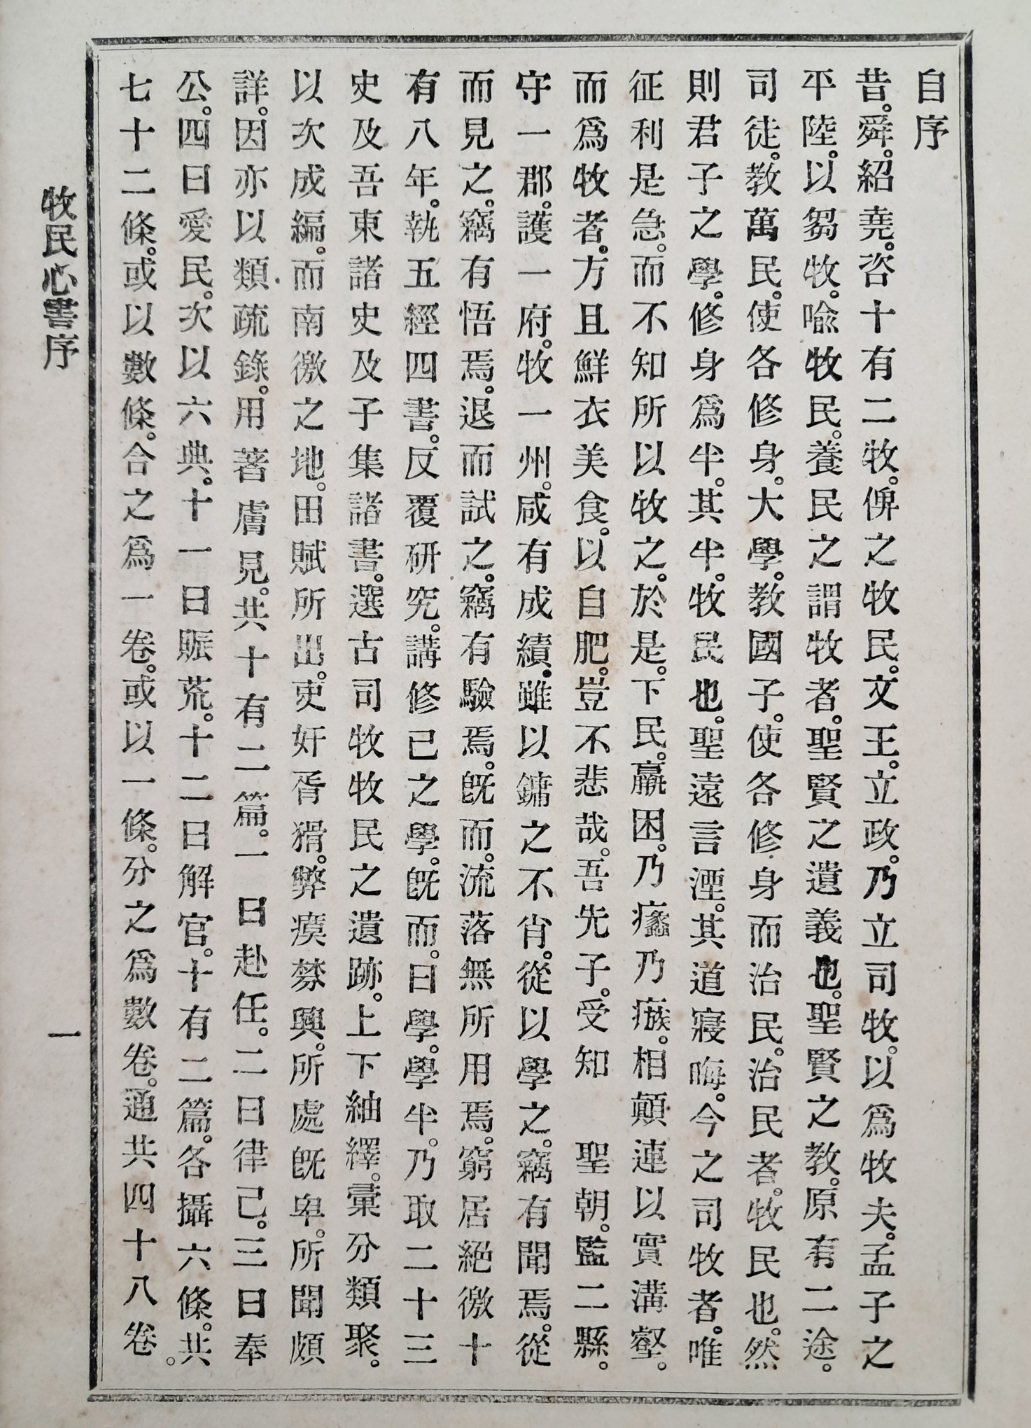 自序
昔。舜。紹堯。咨十有二牧。俾之牧民。文王。立政。乃立司牧。以爲牧夫。孟子之
平陸。以芻牧。喩牧民。養民之謂牧者。聖賢之遺義也。聖賢之教。原有二途。
司徒。教萬民。使各修身。大學。教國子。使各修身而治民。治民者。牧民也。然
則君子之學。修身爲半。其半。牧民也。聖遠言湮。其道寢晦。今之司牧者。唯
征利是急。而不知所以牧之。於是。下民。羸困。乃瘯。相顚連以實溝壑。
而爲牧者。方且鮮衣美食。以自肥。豈不悲哉。吾先子。受知 聖朝。監二縣。
守一郡。護一府。牧一州。咸有成績。雖以鏞之不肖。從以學之。竊有聞焉。從
而見之。竊有悟焉。退而試之。竊有驗焉。旣而。流落無所用焉。窮居絕徼十
有八年。執五經四書。反覆硏究。講修己之學。旣而。曰學。學半。乃取二十三
史及吾東諸史及子集諸書。選古司牧牧民之遺跡。上下紬繹。彙分類聚。
以次成編。而南徼之地。田賦所出。吏奸胥猾。弊瘼棼興。所處旣卑。所聞頗
詳。因亦以類疏錄。用著膚見。共十有二篇。一曰赴任。二曰律己。三曰奉
公。四曰愛民。次以六典。十一曰賑荒。十二曰解官。十有二篇。各攝六條。共
七十二條。或以數條。合之爲一卷。或以一條。分之爲數卷。通共四十八卷。
牧民心書序
一